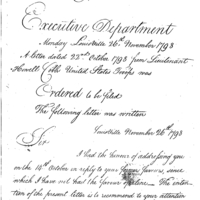 Executive Department
Monday Louisville 26th November 1793
A letter dated 22nd October 1793 from Lieutenant
Howell Cobb United States Troops was
Ordered to be filed
The following letter was written
Louisville 26th November 1793
Sir
I had the honor of addressing you
on the 14th October in reply to your former favors, since
which I have not had the favor of The inten
tion of the present letter is to recommend to your attention